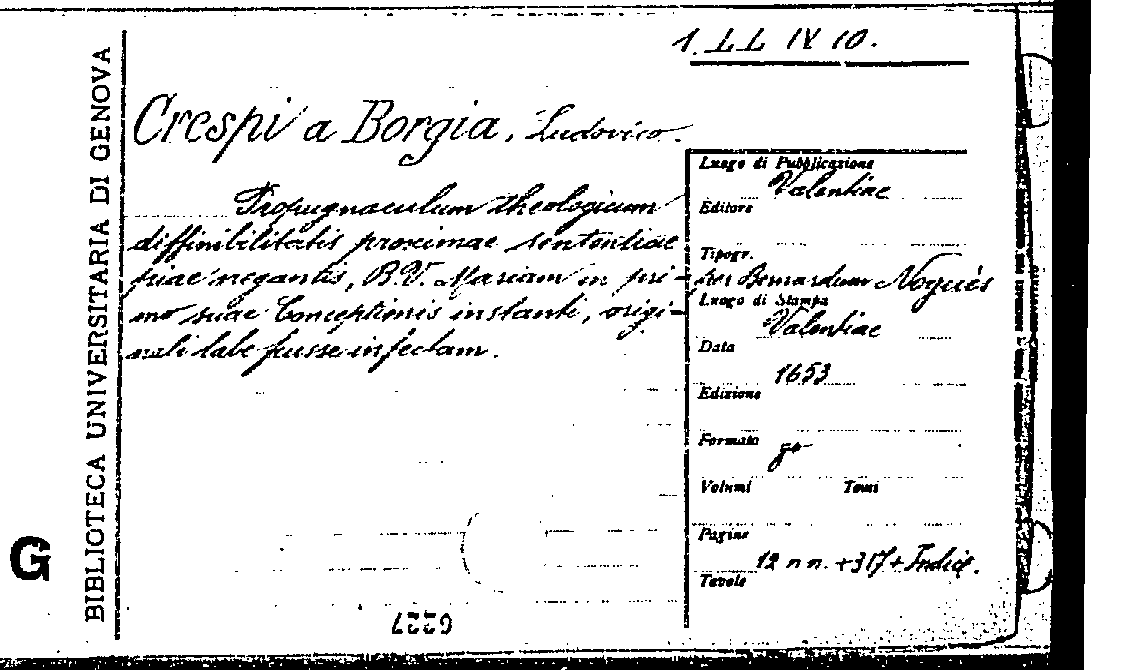 1. LL IV 10.
BIBLIOTECA UNIVERSITARIA DI GENOVA
Crespi a Borgia, Ludovico.
Propugnaculum theologicum
diffinibilitatis proximae sententiae
piae negantis, B.V. Mariam in pri-
mo suae Conceptionis instanti, origi-
nali labe fuisse infectam.
Luogo di Pubblicazione
Valentiae
Editore
Tipogr.
per Bernardum Nogués
Luogo di Stampa
Valentiae
Data
1653
Edizione
Formato
Volumi Tomi
Pagine
12 n n. + 317 + Indic.
Tavole
G
6227